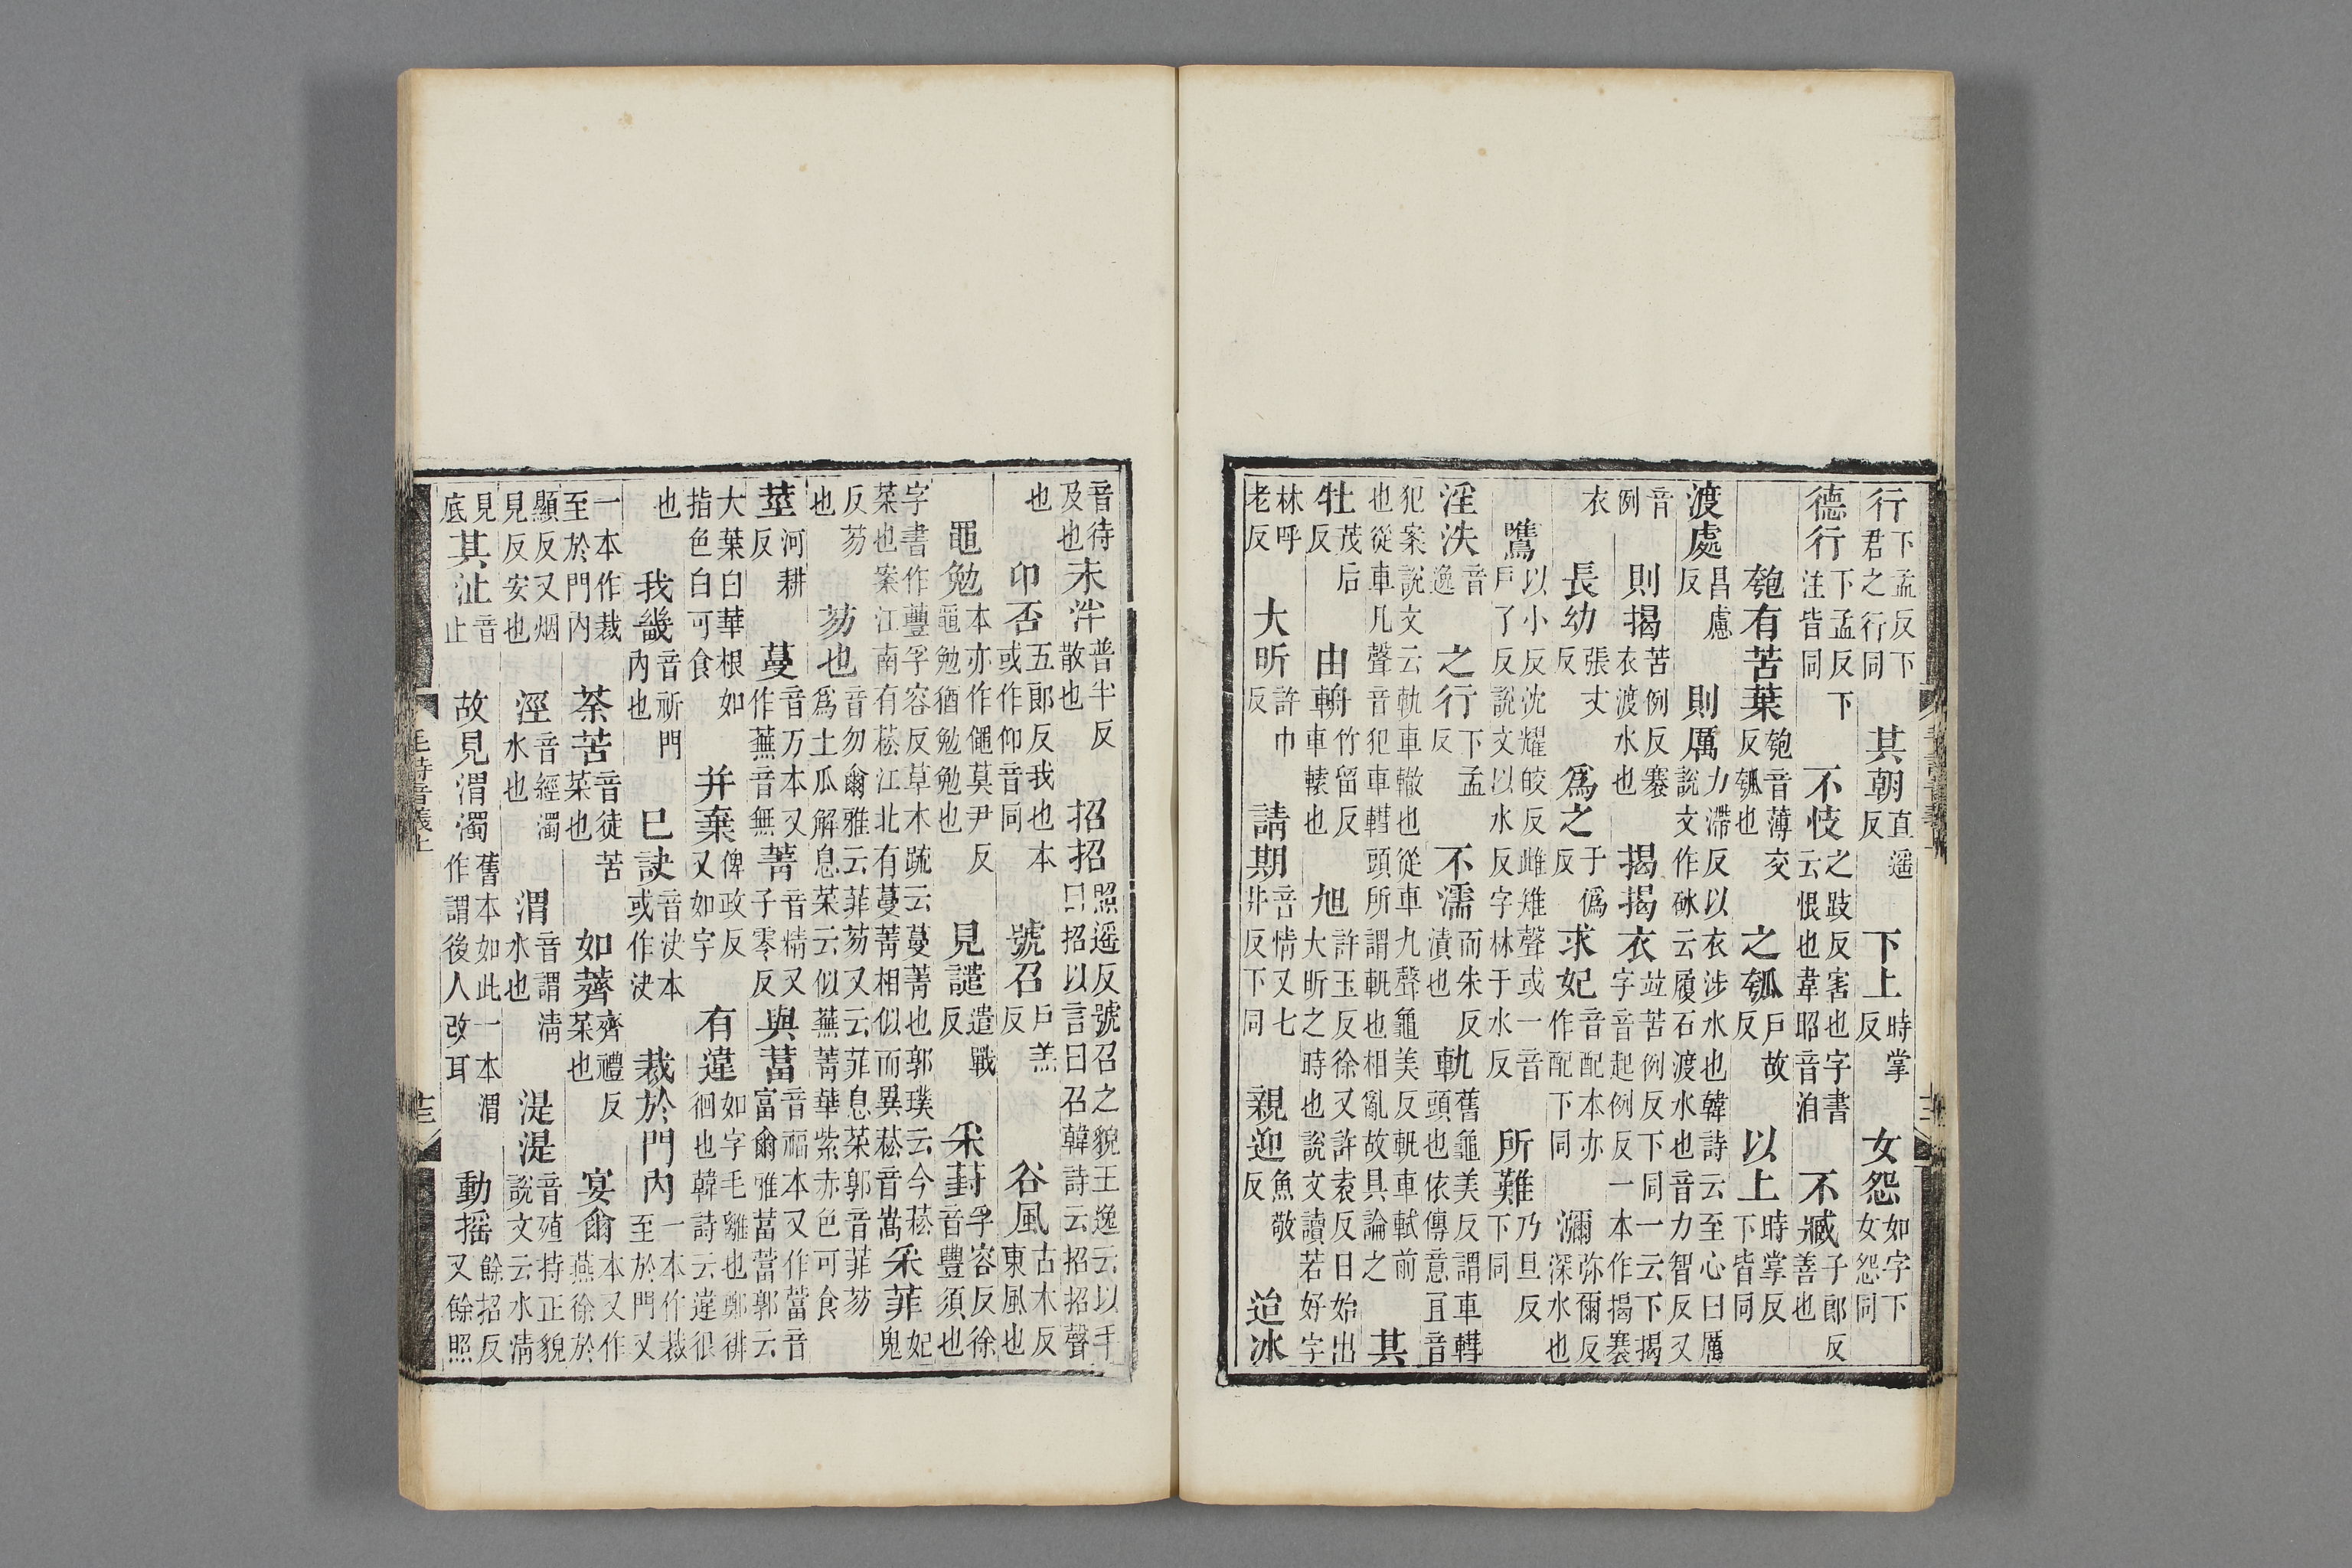 行下孟反下君之行同其朝直遥反下上時掌反女怨如字下女怨同
德行下孟反下注皆同不忮之跂反害也字書云恨也韋昭音洎不臧子郎反善也
匏有苦葉匏音薄交反瓠也之瓠戶故反以上時掌反下皆同
渡處昌慮反則厲力滯反以衣涉水也韓詩云至心曰厲說文作砅云履石渡水也音力智反又
音例則揭苦例反褰衣渡水也揭揭衣竝苦例反下同一云下揭字音起例反一本作揭褰
衣長幼張丈反爲之于僞反求妃音配本亦作配下同瀰弥爾反深水也
鷕以小反沈耀皎反雌雉聲或一音戶了反說文以水反字林于水反所難乃旦反下同
淫泆音逸之行下孟反不濡而朱反漬也軌舊龜美反謂車轊頭也依傳意宜音
犯案說文云軌車轍也從車九聲龜美反軓車軾前也從車凡聲音犯車轊頭所謂軓也相亂故具論之其
牡茂后反由輈竹留反車轅也旭許玉反徐又許袁反日始出大昕之時也說文讀若好字
林呼老反大昕許巾反請期音情又七井反下同親迎魚敬反迨冰
音待及也未泮普半反散也招招照遥反號召之貌王逸云以手曰招以言曰召韓詩云招招聲
也卬否五郎反我也本或作仰音同號召戶羔反谷風古木反東風也
黽勉本亦作僶莫尹反黽勉猶勉勉也見譴遣戰反采葑孚容反徐音豐須也
字書作蘴孚容反草木疏云蔓菁也郭璞云今菘菜也案江南有菘江北有蔓菁相似而異菘音嵩采菲妃鬼
反芴也芴也音勿爾雅云菲芴又云菲息菜郭音菲芴爲土瓜解息菜云似蕪菁華紫赤色可食
莖河耕反蔓音万本又作蕪音無菁音精又子零反與葍音福本又作䔰音富爾雅葍䔰郭云
大葉白華根如指色白可食并棄俾政反又如字有違如字毛離也鄭徘徊也韓詩云違很
也我畿音祈門內也已訣音決本或作決裁於門內一本作裁至於門又
一本作裁至於門內荼苦音徒苦菜也如薺齊禮反菜也宴爾本又作燕徐於
顯反又烟見反安也涇音經濁水也渭音謂清水也湜湜音殖持正貌說文云水清
見底其沚音止故見渭濁舊本如此一本渭作謂後人改耳動摇餘招反又餘照
毛詩音義上